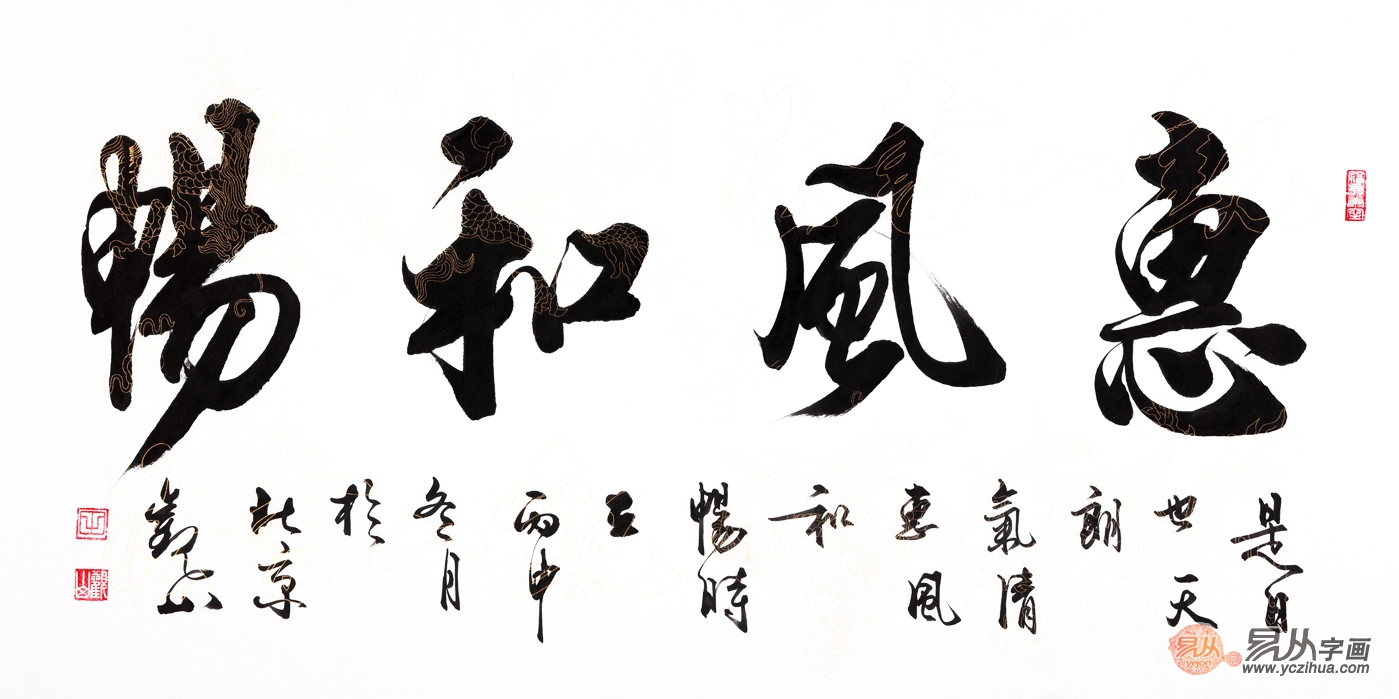 惠風和暢
是日
也天
朗
氣清
惠風
和
暢時
在
丙申
冬月
於
北京
觀山
易从字画
www.yczihua.com